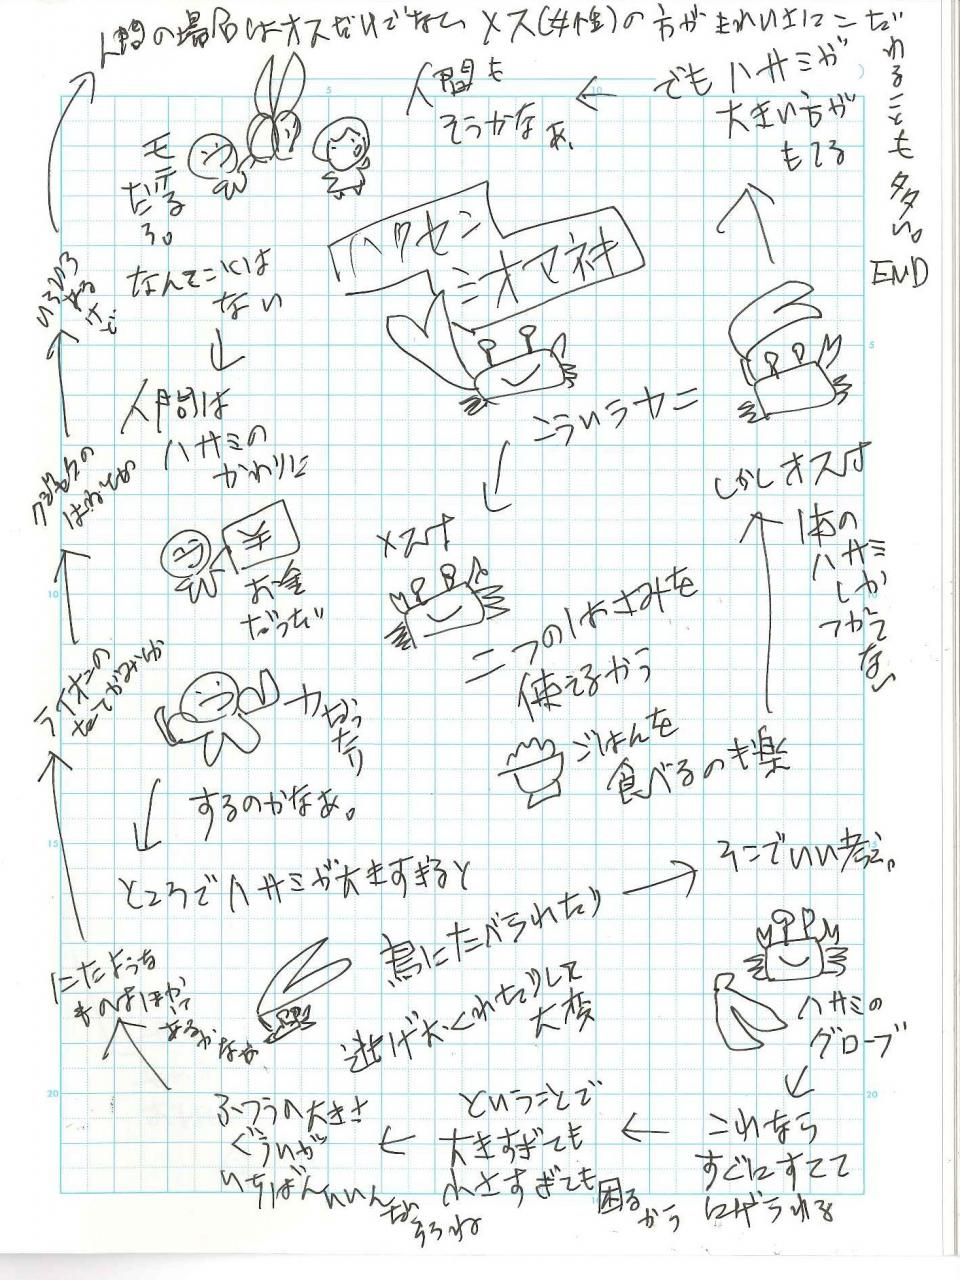 ハクセン
シオマネキ
こういうカニ
メスは
二つのはさみを
使えるから
ごはんを
食べるのも楽
しかしオスは
1本の
ハサミ
しか
つかえて
ない
でもハサミが
大きい方が
もてる
人間も
そうかなぁ、
モテ
だろ
ろ。
なんてことは
ない
人間は
ハサミの
かわりに
¥
お金
だったり
力だっ
たり
するのかなぁ。
ところでハサミが大きすぎると
鳥にたべられたり
逃げおくれたりして
大変
そこでいい考え。
ハサミの
グローブ
これなら
すぐにすてて
にげられる
ということで
大きすぎても
小さすぎても困る
から
ふつうの大きさ
ぐらいが
いちばんいいん
だ
ろうね
にたような
ものはほか
にて
あるかなぁ
ライオンの
たてがみとか
クジャクの
はねとか
いろいろ
あるけど
人間の場合はオスだけでなく、メス(女性)の方がきれいさにこだ
わることも多い。
END